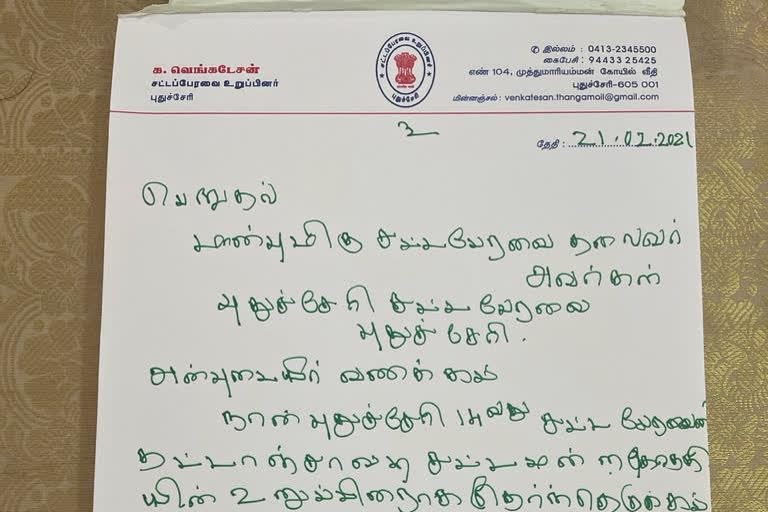 க. வெங்கடேசன்
சட்டப்பேரவை உறுப்பினர்
புதுச்சேரி
சட்டப்பேரவை உறுப்பினர்
புதுச்சேரி
✆ இல்லம் : 0413-2345500
கைபேசி : 94433 25425
எண் 104, முத்துமாரியம்மன் கோயில் வீதி
புதுச்சேரி-605 001
மின்னஞ்சல் : venkatesan.thangamoil@gmail.com
உ
தேதி : 21.02.2021
பெறுதல்
மாண்புமிகு சட்டபேரவை தலைவர்
அவர்கள்
புதுச்சேரி சட்டபேரவை
புதுச்சேரி.
அன்புடையீர் வணக்கம்
நான் புதுச்சேரி 14வது சட்டபேரவையின்
தட்டாஞ்சாவடி சட்டமன்ற தொகுதி
யின் உறுப்பினராக